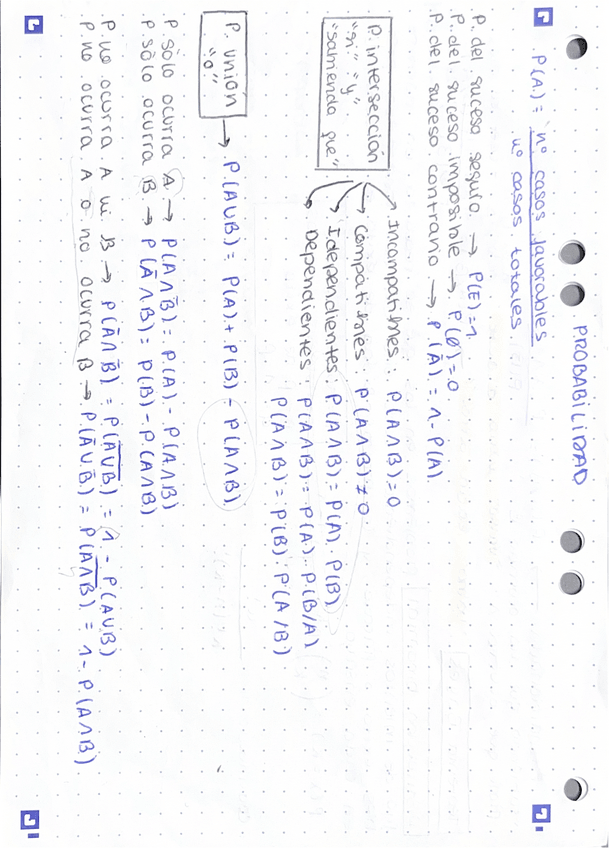 PROBABILIDAD
P(A) = nº casos favorables
nº casos totales
P. del suceso seguro → P(E) = 1
P. del suceso imposible → P(Ø) = 0
P. del suceso contrario → P(Ā) = 1 - P(A)
P. intersección
"ni" "y"
"sabiendo que"
Incompatibles: P(A∩B) = 0
Compatibles: P(A∩B) ≠ 0
Idependientes: P(A∩B) = P(A) · P(B)
Dependientes: P(A∩B) = P(A) · P(B/A)
P(A∩B) = P(B) · P(A/B)
P. unión
"o"
→ P(A∪B) = P(A) + P(B) - P(A∩B)
P. sólo ocurra A → P(A∩B̄) = P(A) - P(A∩B)
P. sólo ocurra B → P(Ā∩B) = P(B) - P(A∩B)
P no ocurra A ni B → P(Ā∩B̄) = P(A̅∪̅B̅) = 1 - P(A∪B)
P no ocurra A o no ocurra B → P(Ā∪B̄) = P(A̅∩̅B̅) = 1 - P(A∩B)